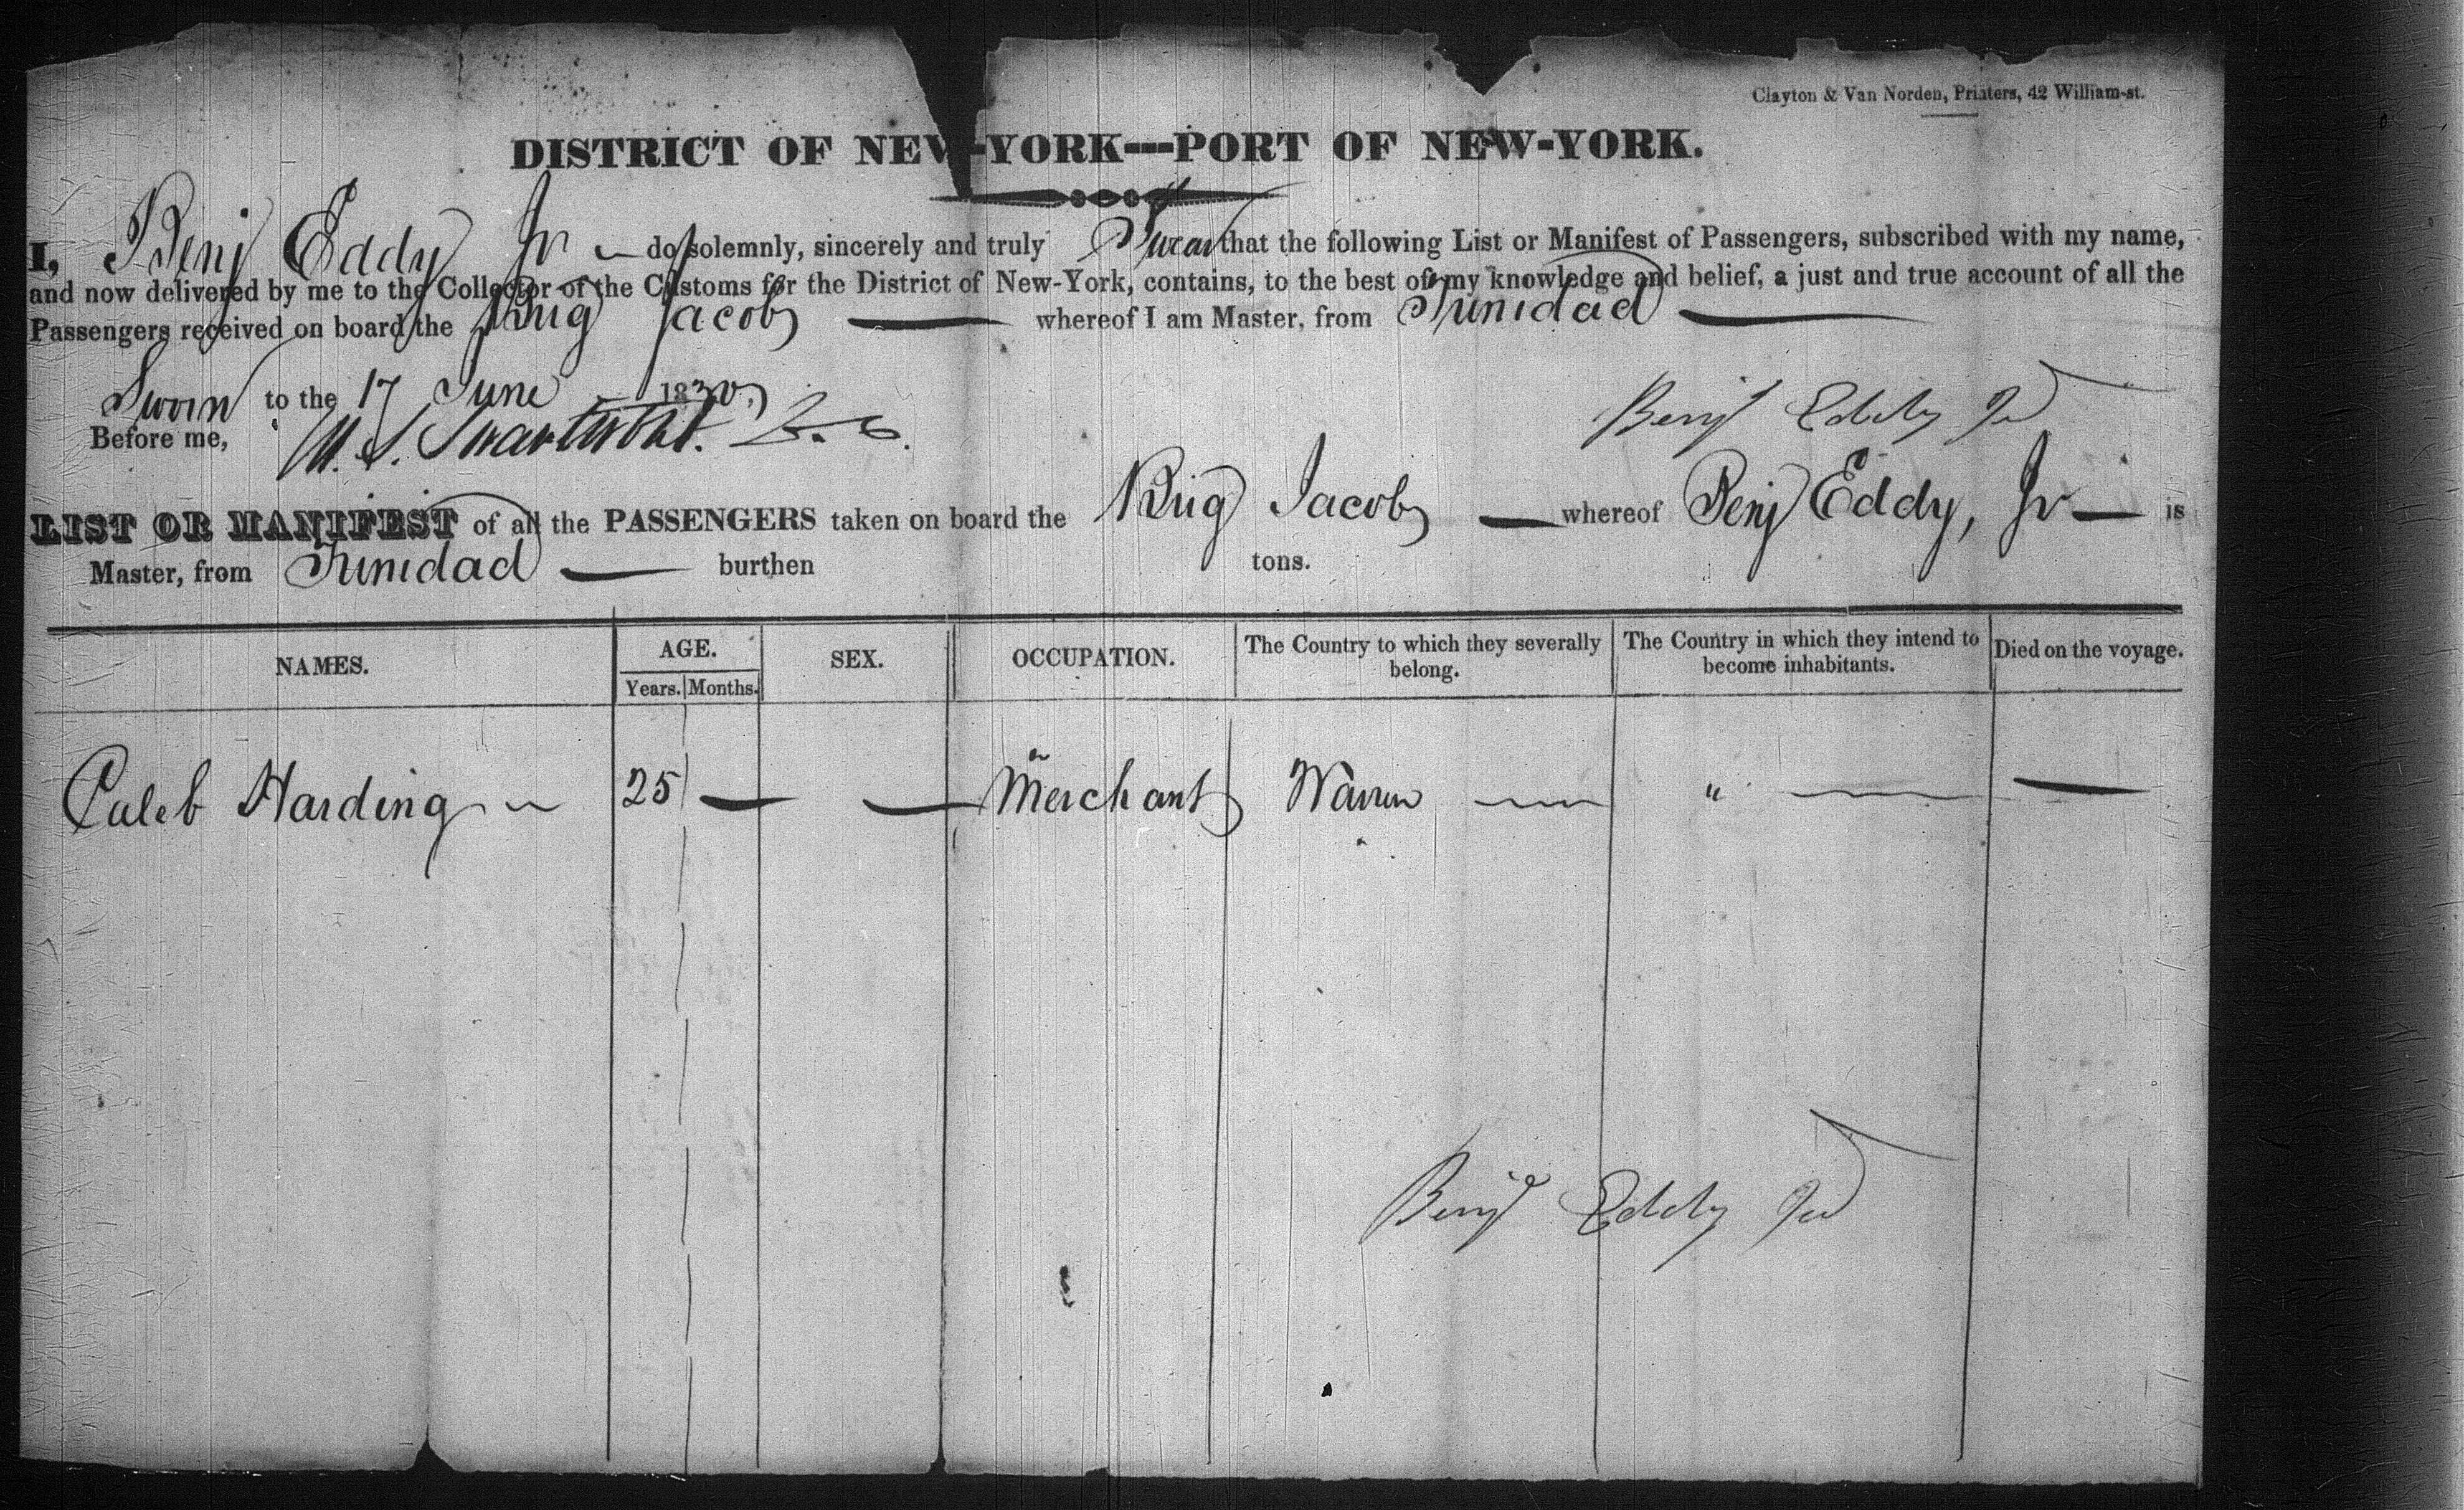 Clayton & Van Norden, Printers, 42 William-st.
DISTRICT OF NEW-YORK---PORT OF NEW-YORK.
I, Benj Eddy Jr do solemnly, sincerely and truly Swear that the following List or Manifest of Passengers, subscribed with my name,
and now delivered by me to the Collector of the Customs for the District of New-York, contains, to the best of my knowledge and belief, a just and true account of all the
Passengers received on board the Brig Jacob whereof I am Master, from Trinidad
Sworn to the 17 June 1830
Benj Eddy Jr
Before me, Swartwout
LIST OR MANIFEST of all the PASSENGERS taken on board the Brig Jacob whereof Benj Eddy, Jr is
Master, from Trinidad burthen tons.
NAMES. AGE. SEX. OCCUPATION. The Country to which they severally belong. The Country in which they intend to become inhabitants. Died on the voyage.
Years. Months.
Caleb Harding 25 Merchant Warren "
Benj Eddy Jr